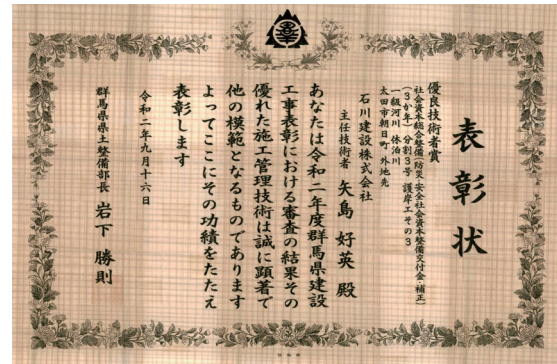 表彰状
優良技術者賞
社会資本総合整備(防災・安全社会資本整備交付金・補正)
(3か年)分割3号 護岸工その3
一級河川 休泊川
太田市朝日町 外地先
石川建設株式会社
主任技術者 矢島 好英 殿
あなたは令和二年度群馬県建設
工事表彰における審査の結果その
優れた施工管理技術は誠に顕著で
他の模範となるものであります
よってここにその功績をたたえ
表彰します
令和二年九月十六日
群馬県県土整備部長 岩下 勝則